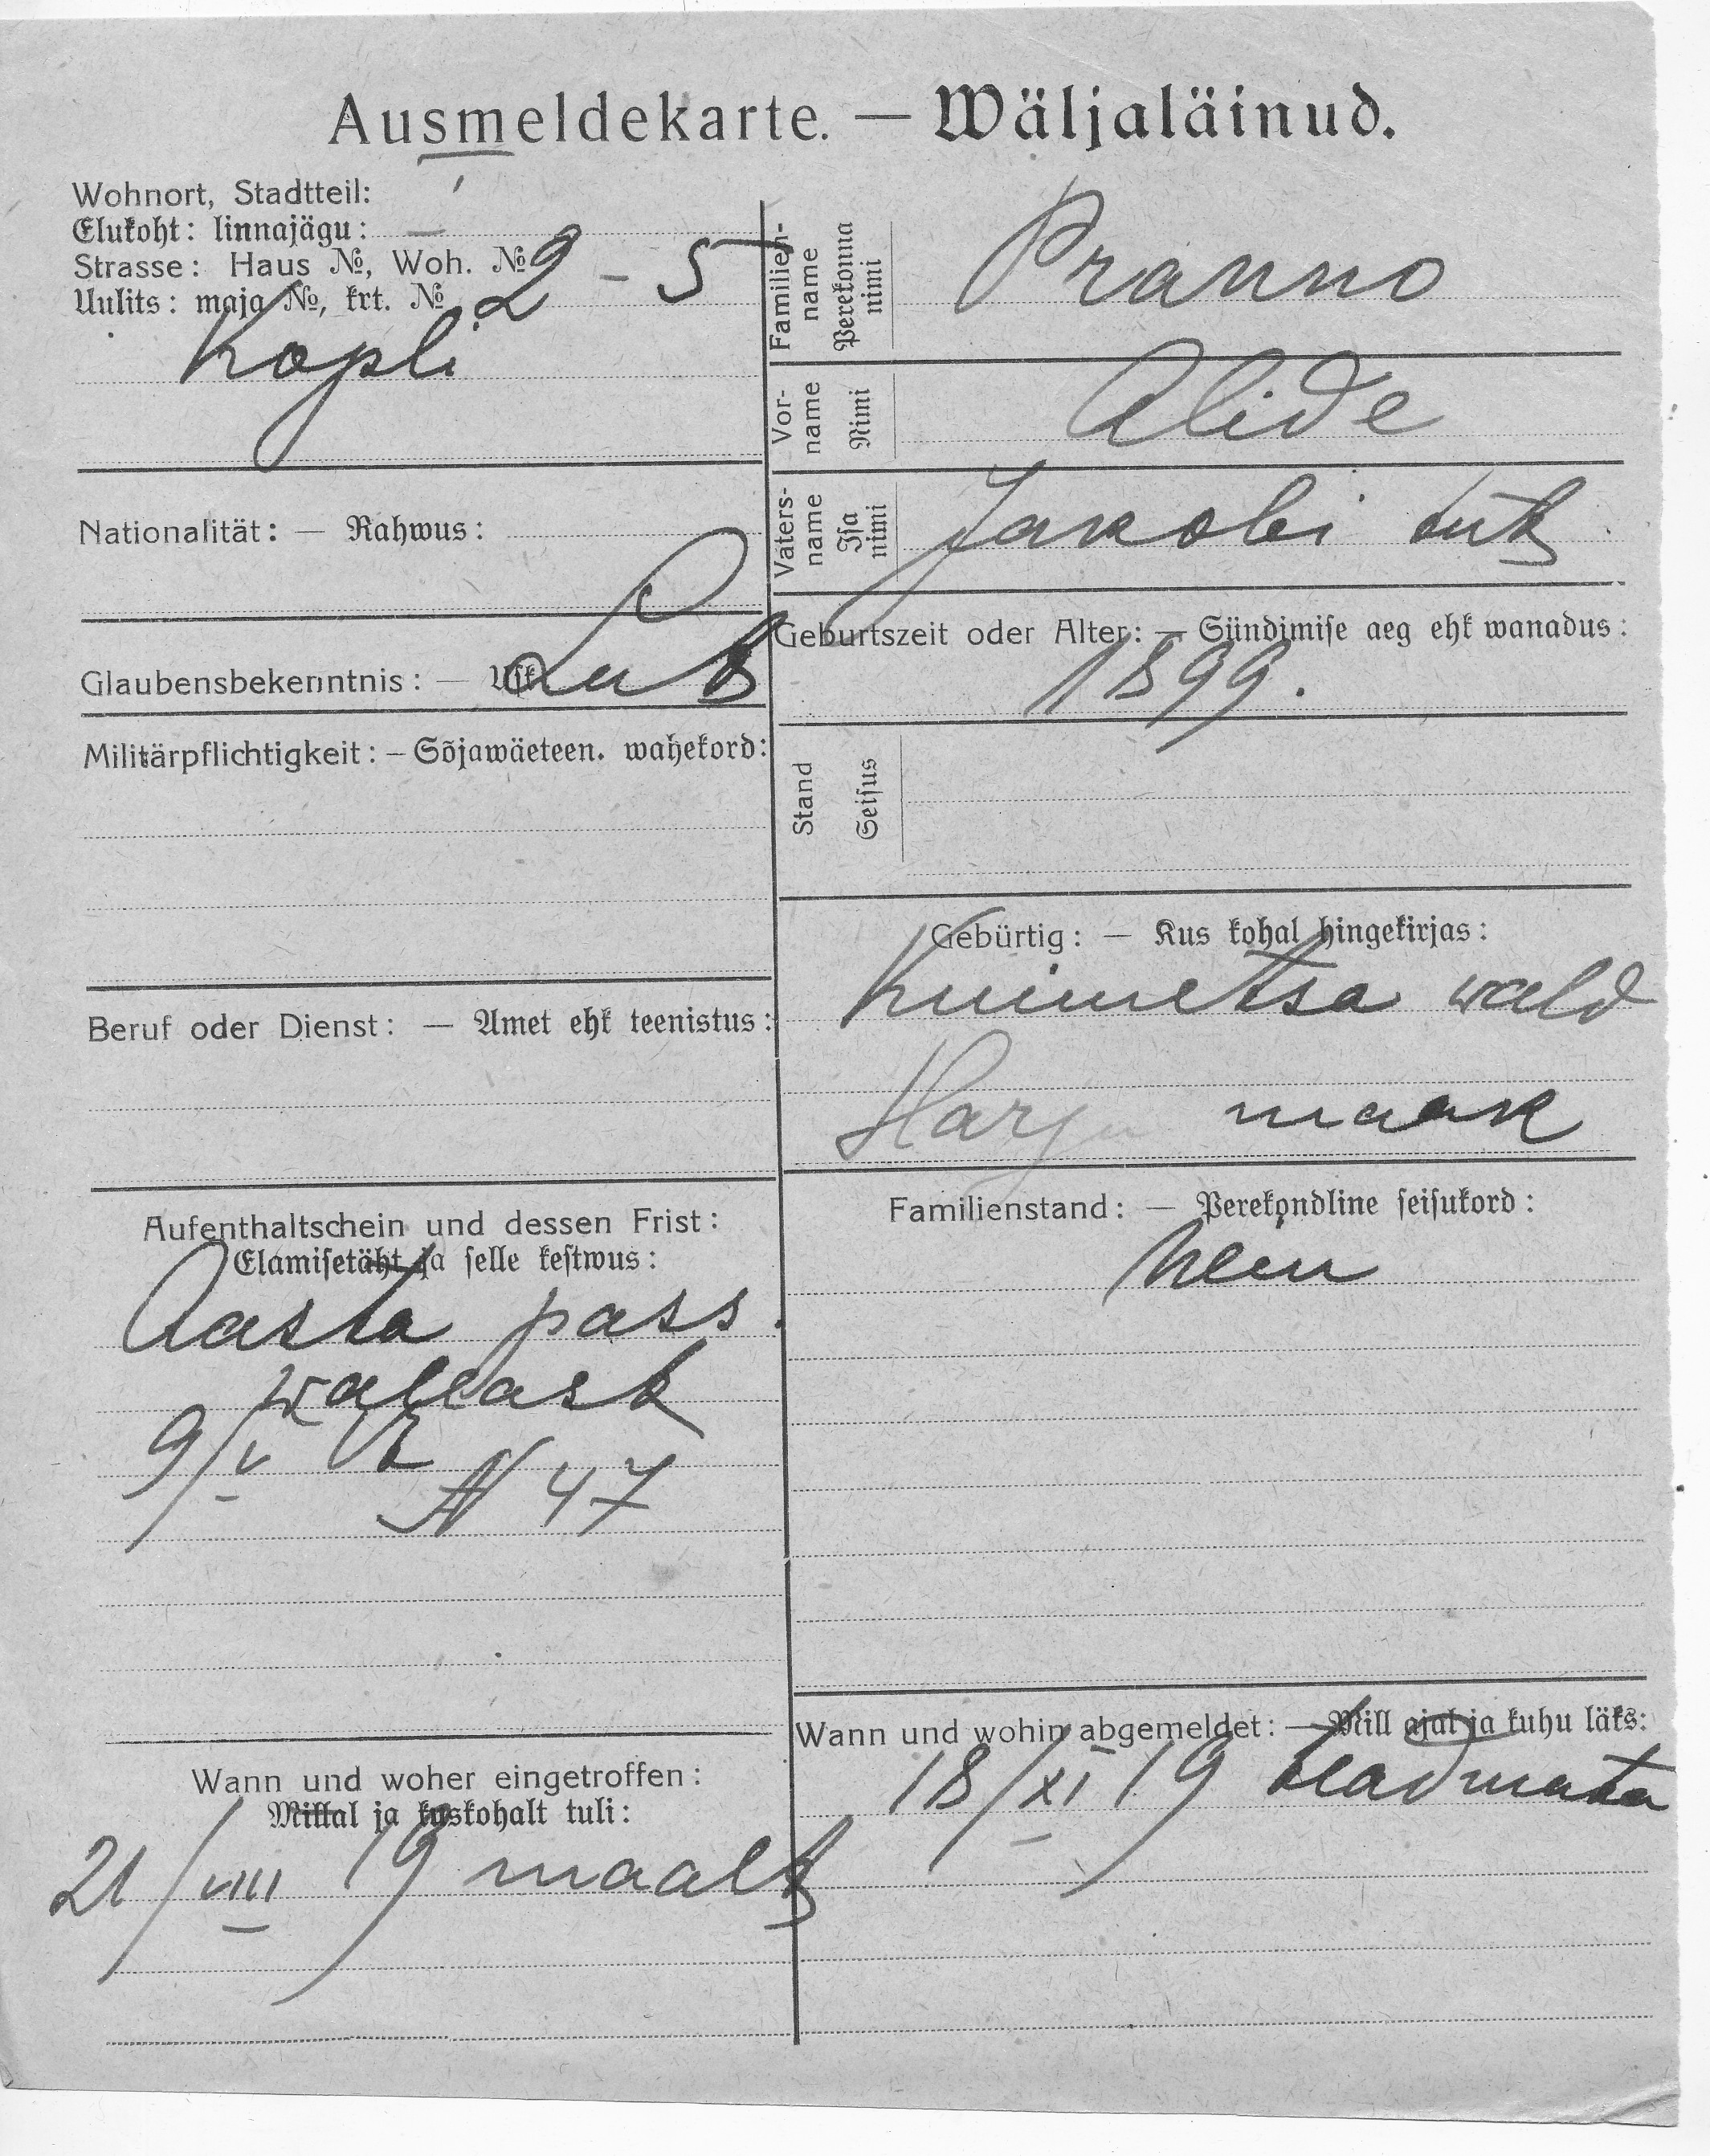 Ausmeldekarte. — Wäljaläinud.
Wohnort, Stadtteil:
Elukoht: linnajägu: —
Strasse: Haus №, Woh. № 2 - 5
Uulits: maja №, krt. №
Kopli
Nationalität: — Rahwus:
Glaubensbekenntnis: — Usk Lut
Militärpflichtigkeit: — Sõjawäeteen. wahekord:
Beruf oder Dienst: — Amet ehk teenistus:
Aufenthaltschein und dessen Frist:
Elamisetäht ja selle kestwus:
Aasta pass
wallast
9/V
N 47
Wann und woher eingetroffen:
Millal ja kuskohalt tuli:
21/VIII 19 maalt
Familien-name Perekonna nimi Pranno
Vor-name Nimi Alide
Vaters-name Isa nimi Jakobi tütr
Geburtszeit oder Alter: — Sündimise aeg ehk wanadus:
1899.
Stand Seisus
Gebürtig: — Kus kohal hingekirjas:
Kuimetsa wald
Harju maak
Familienstand: — Perekondline seisukord:
Neiu
Wann und wohin abgemeldet: — Mill ajal ja kuhu läks:
18/XI 19 teadmata